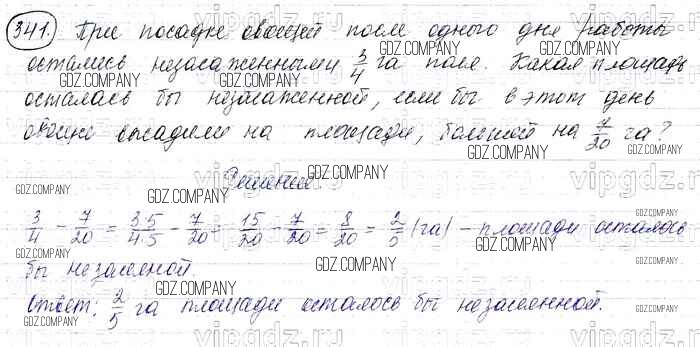 341. При посадке овощей после одного дня работы
остались незасаженными 3/4 га поля. Какая площадь
осталась бы незасаженной, если бы в этот день
овощи высадили на площади, большей на 7/20 га?
Решение
3/4 - 7/20 = 3·5/4·5 - 7/20 = 15/20 - 7/20 = 8/20 = 2/5 (га) - площади осталось
бы незасеянной.
Ответ: 2/5 га площади осталось бы незасеянной.
GDZ.COMPANY
vipgdz.ru